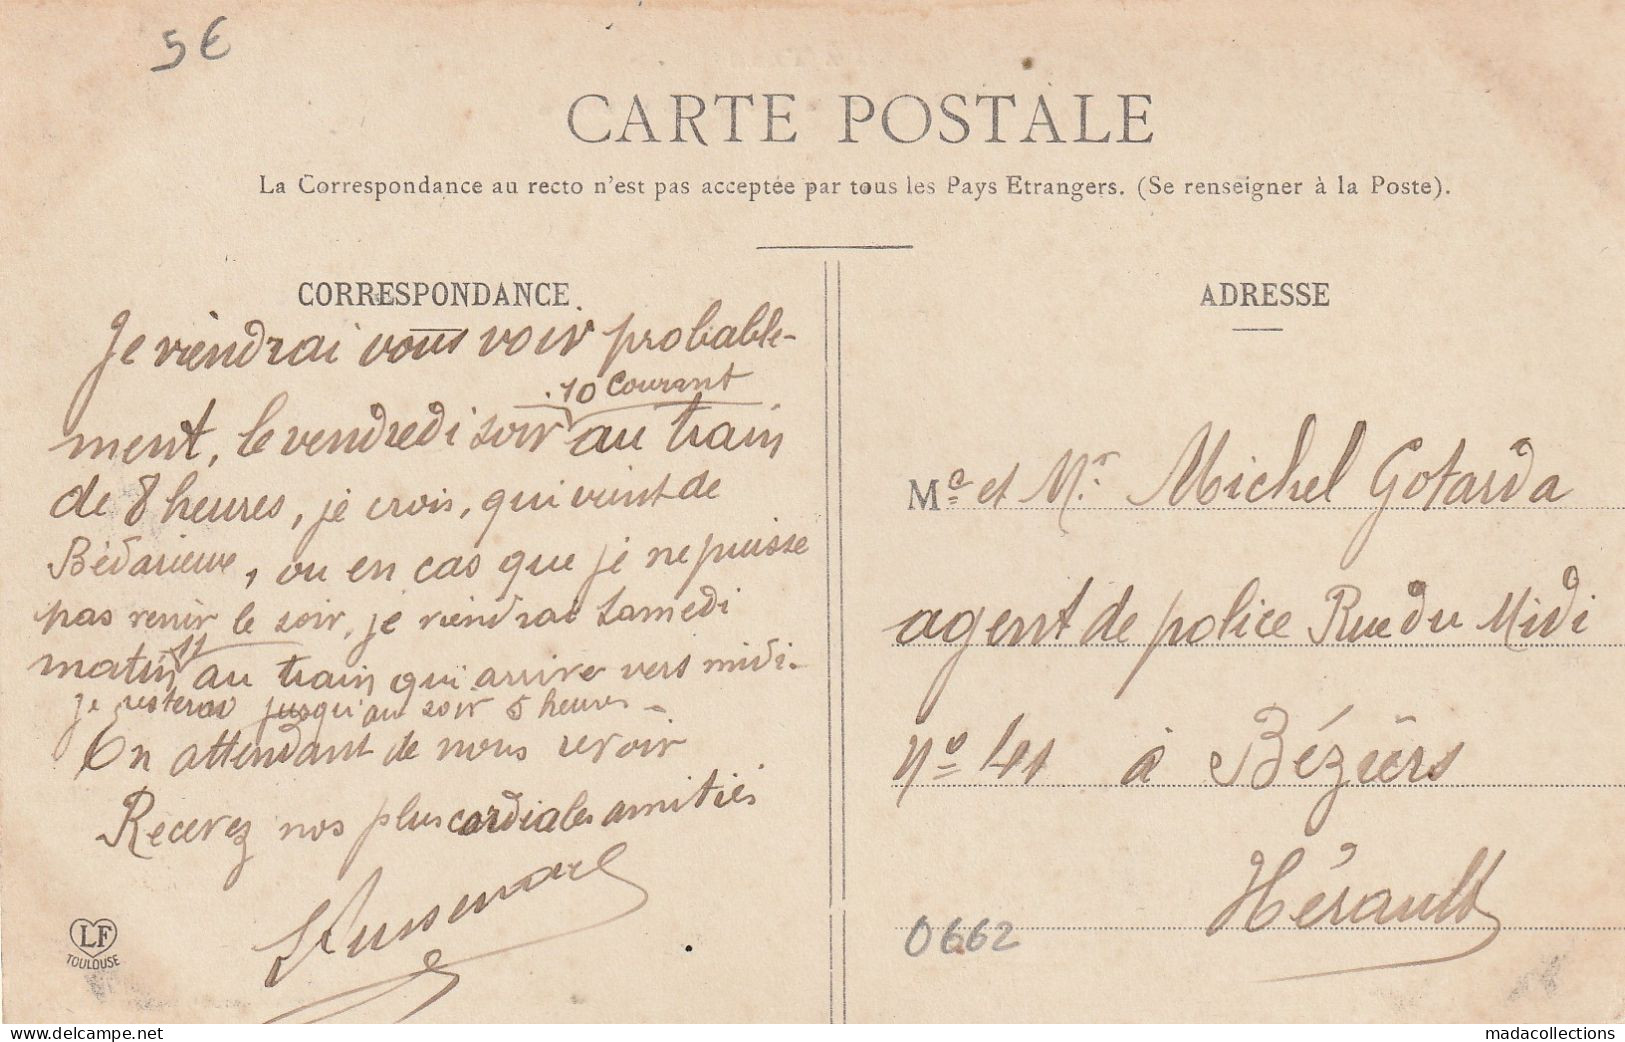 5€
CARTE POSTALE
La Correspondance au recto n'est pas acceptée par tous les Pays Etrangers. (Se renseigner à la Poste).
CORRESPONDANCE
Je viendrai vous voir probable-
10 Courant
ment, le vendredi soir au train
de 8 heures, je crois, qui vient de
Bédarieux, ou en cas que je ne puisse
pas venir le soir, je viendrai Samedi
11
matin au train qui arrive vers midi.
je resterai jusqu'au soir 5 heures -
En attendant de nous revoir
Recevez nos plus cordiales amitiés
LF
TOULOUSE
ADRESSE
Me et Mr. Michel Gotarda
agent de police Rue du Midi
No 41 à Béziers
Hérault
0662
www.delcampe.net
madacollections